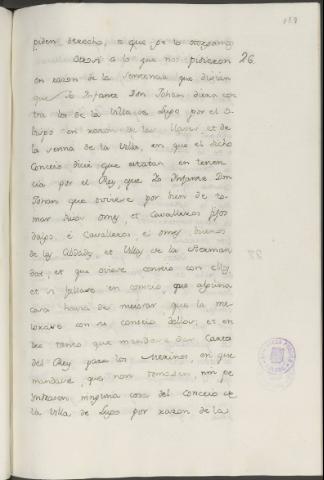 piden derecho, e que ge lo
Otrosi a lo que nos pidieron 26.
en razon de la sentencia que disian
que lo Infante Don Johan diera con
tra los de la Villa de Lugo por el O-
bispo en razon de las llaves et de
la senna de la Villa, en que el dicho
Concejo dicie que estaban en tenen
cia por el Rey, que Yo Infante Don
Johan que oviere por bien de to-
mar duos omes et Cavalleros fijos
dalgo, é Cavalleros, é omes buenos
de las Cibdades, et Villas de la Herman
dat, et que oviere consejo con ellos,
et si fallare en consejo, que alguna
cosa havia de mejorar, que la me-
lorare con su consejo dellos, et en
tanto que mandare dar Carta
del Rey para los Merinos, en que
mandare, que non tomasen, nin pe
indrasen ninguna cosa del concejo de
la Villa de Lugo por razon de la